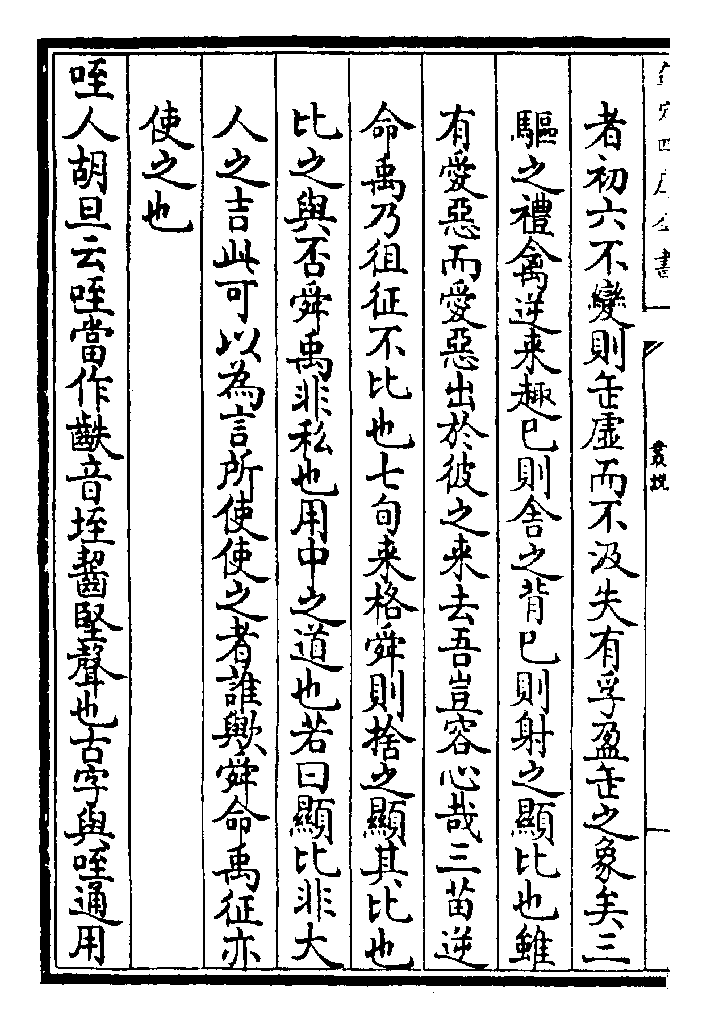 欽定四庫全書
叢說
者初六不變則缶虛而不汲失有孚盈缶之象矣三
驅之禮禽逆来趣已則舍之背已則射之顯比也雖
有愛惡而愛惡出於彼之来去吾豈容心哉三苗逆
命禹乃徂征不比也七旬来格舜則捨之顯其比也
比之與否舜禹非私也用中之道也若曰顯比非大
人之吉此可以為言所使使之者誰歟舜命禹征亦
使之也
咥人胡旦云咥當作齥音垤齧堅聲也古字與咥通用